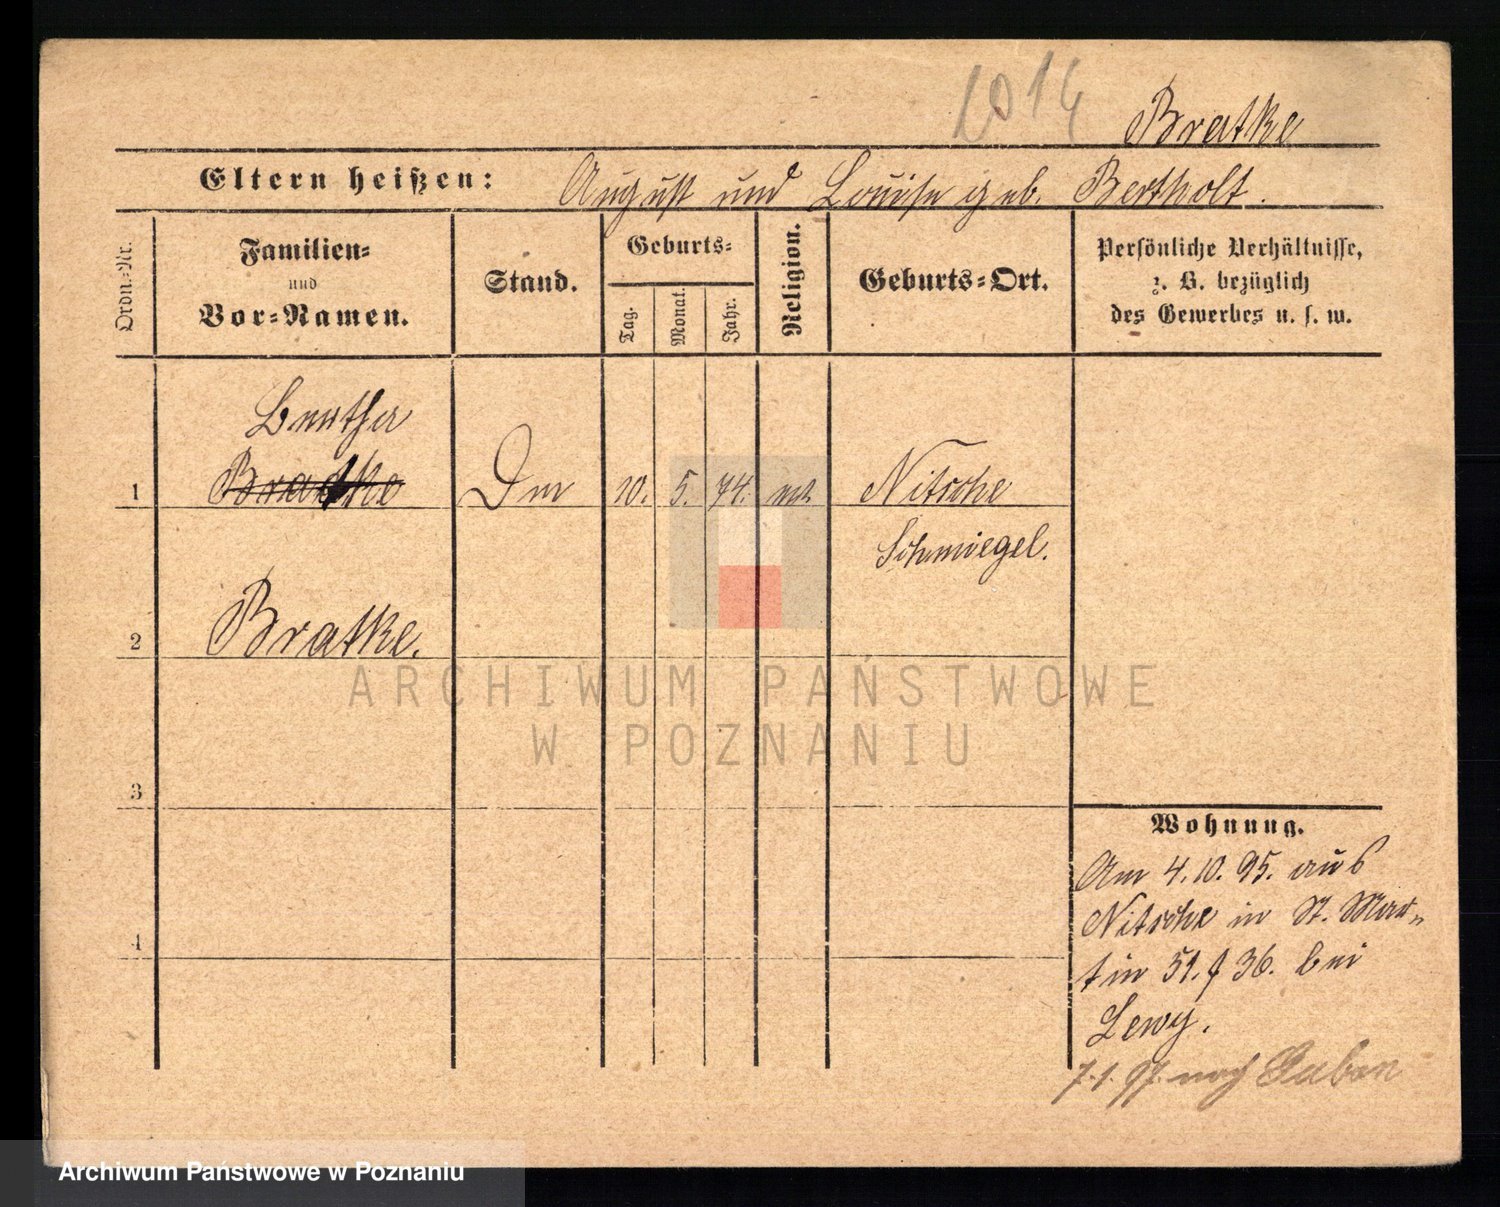 1014
Bratke
Eltern heißen: August und Louise geb. Bertholt.
Ordn.-Nr.
Familien-
und
Vor-Namen.
Stand.
Geburts-
Tag.
Monat.
Jahr.
Religion.
Geburts-Ort.
Persönliche Verhältnisse,
z. B. bezüglich
des Gewerbes u. s. w.
Bertha
1 Bradtke 10. 5. 74. Nitsche
Schmiegel.
2 Bratke.
3
4
Wohnung.
Am 4.10.95. aus
Nitsche in St. Mar-
tin 51. 36. bei
Lewy.
7.1.97. nach
ARCHIWUM PAŃSTWOWE
W POZNANIU
Archiwum Państwowe w Poznaniu